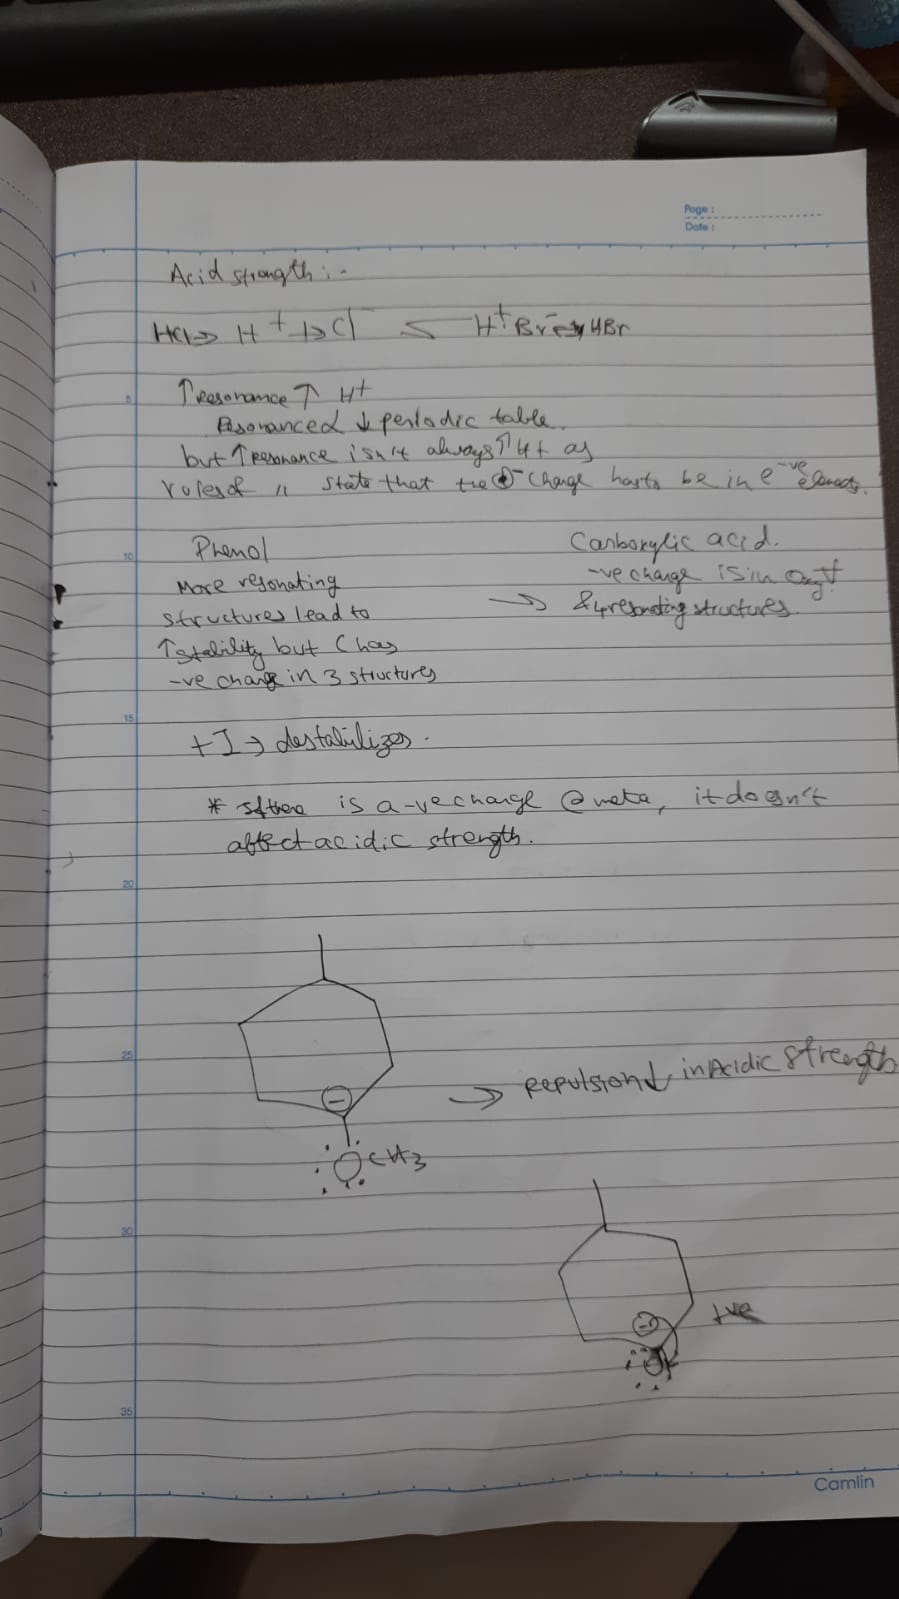 Page :
Date :
Acid strength :-
HCl → H+ + Cl- < H+ Br- → HBr
↑ resonance ↑ H+
Resonance ↓ periodic table.
but ↑ resonance isn't always ↑ H+ as
rules of " state that the - charge has to be in e-ve elements.
Phenol
More resonating
structures lead to
↑ stability but C has
-ve charge in 3 structures
Carboxylic acid.
-ve charge is in
→ resonating structures.
+I → destabilizes.
* If there is a -ve charge @ meta, it doesn't
affect acidic strength.
5
10
15
20
25
30
35
-
OCH3
→ repulsion ↓ in Acidic strength
-
+ve
Camlin